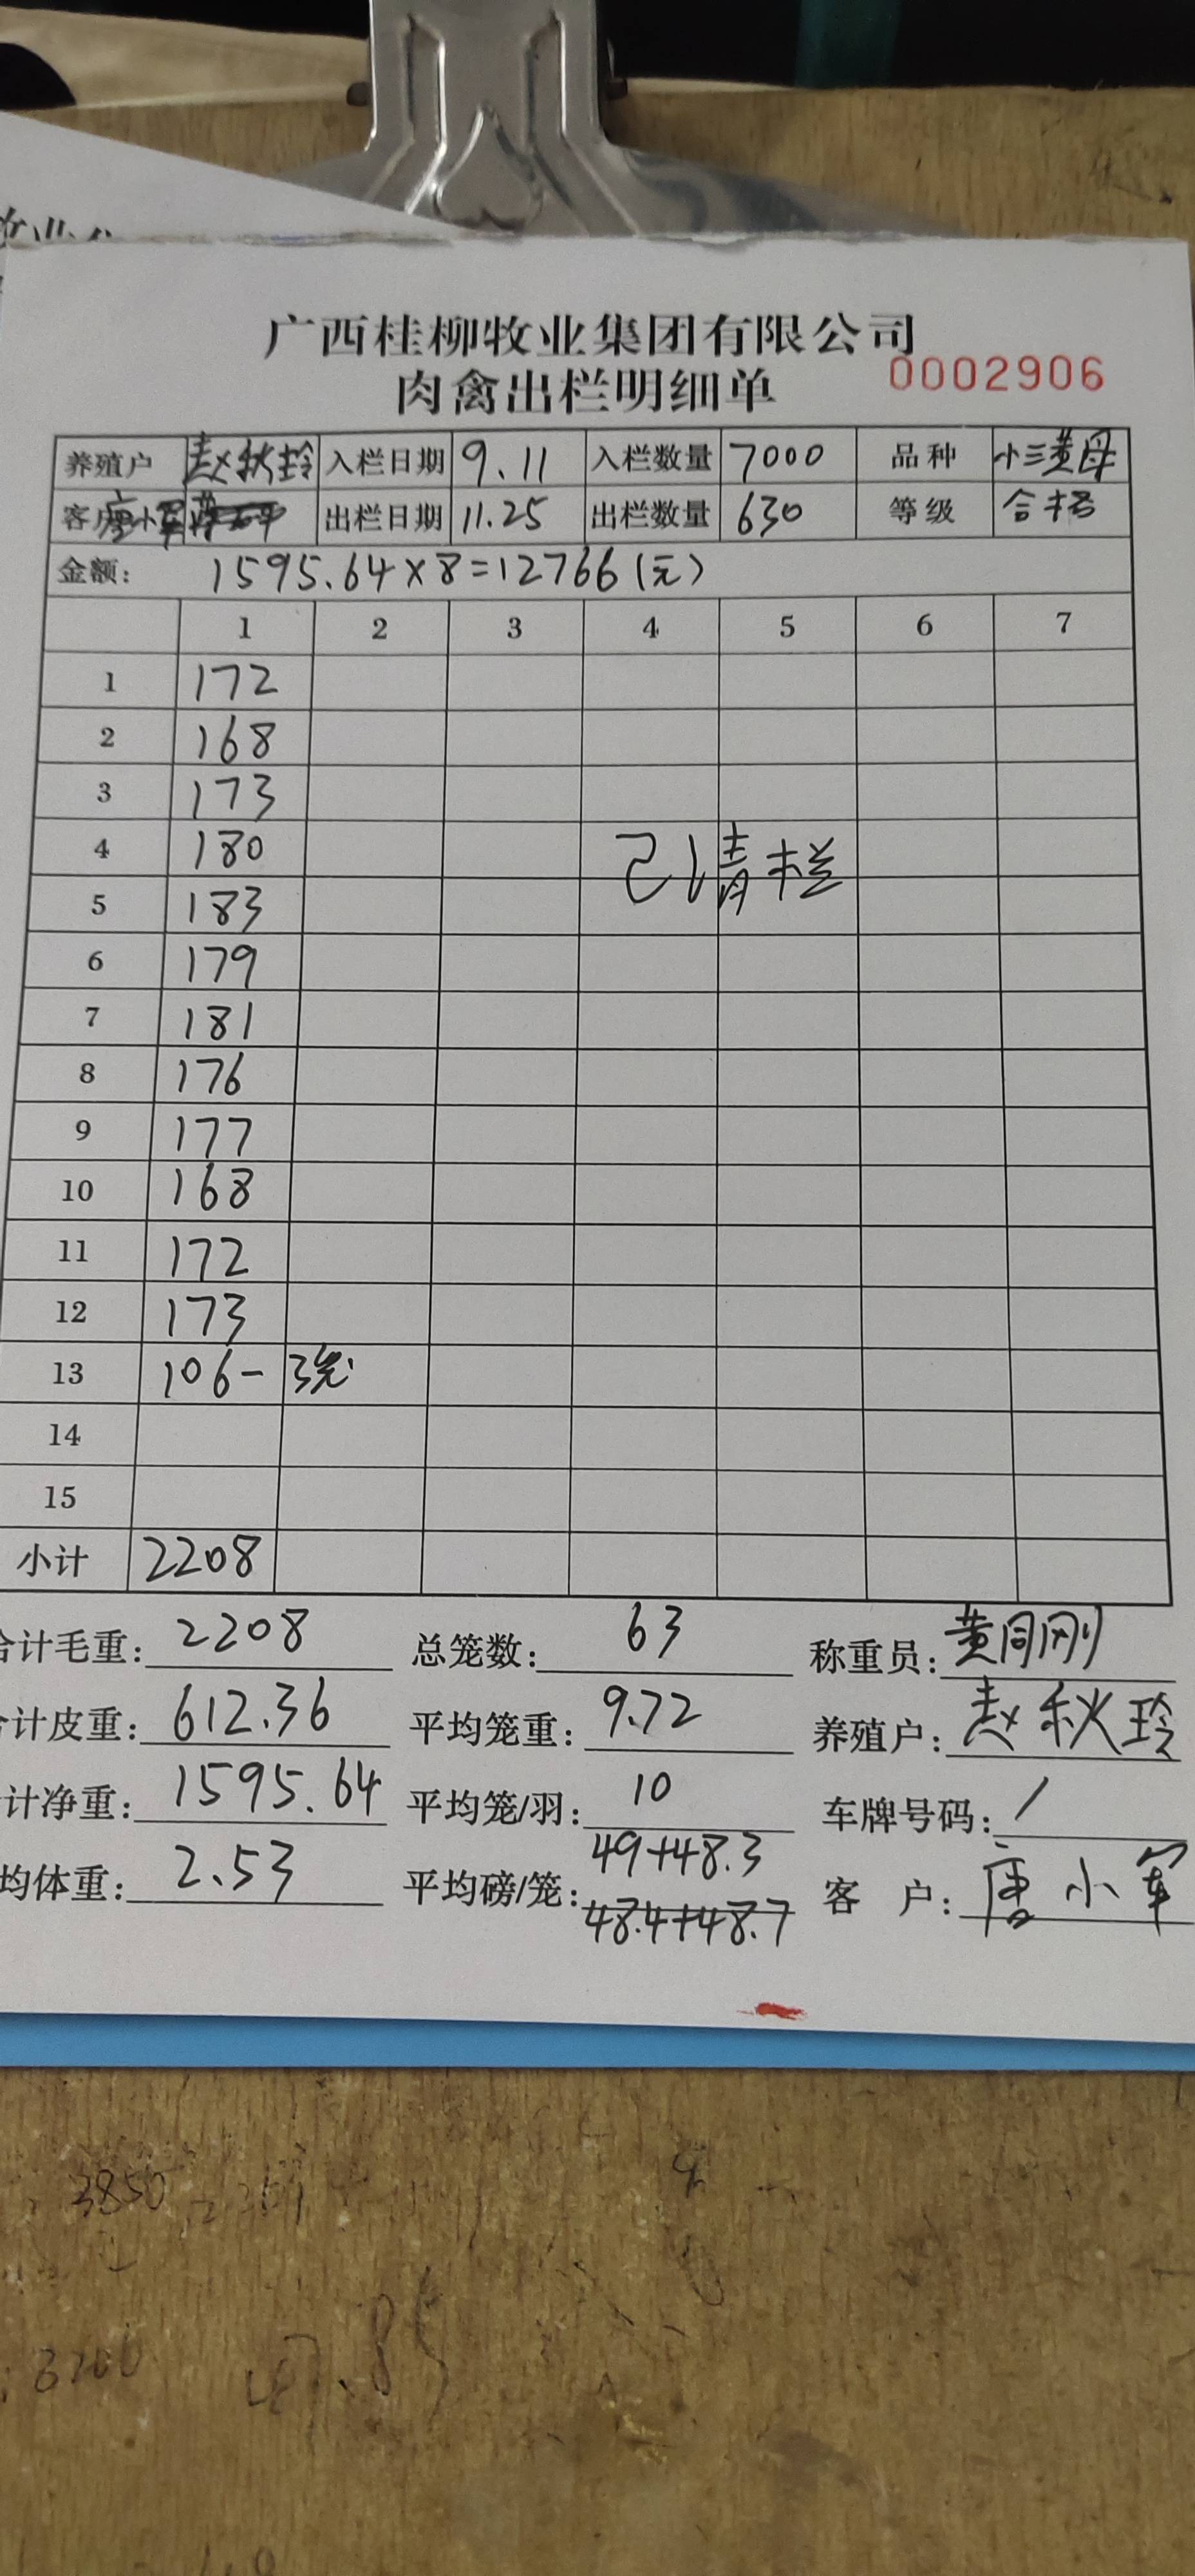 广西桂柳牧业集团有限公司
肉禽出栏明细单 0002906
养殖户 赵秋玲 入栏日期 9.11 入栏数量 7000 品种 小三黄母
客户 唐小军 出栏日期 11.25 出栏数量 630 等级 合格
金额: 1595.64×8=12766(元)
1 2 3 4 5 6 7
1 172
2 168
3 173
4 180 已清栏
5 183
6 179
7 181
8 176
9 177
10 168
11 172
12 173
13 106-
14
15
小计 2208
合计毛重: 2208 总笼数: 63 称重员: 黄同刚
计皮重: 612.36 平均笼重: 9.72 养殖户: 赵秋玲
计净重: 1595.64 平均笼/羽: 10 车牌号码: /
均体重: 2.53 平均磅/笼: 49+48.3 客 户: 唐小军
48.4+48.7
3850
3200